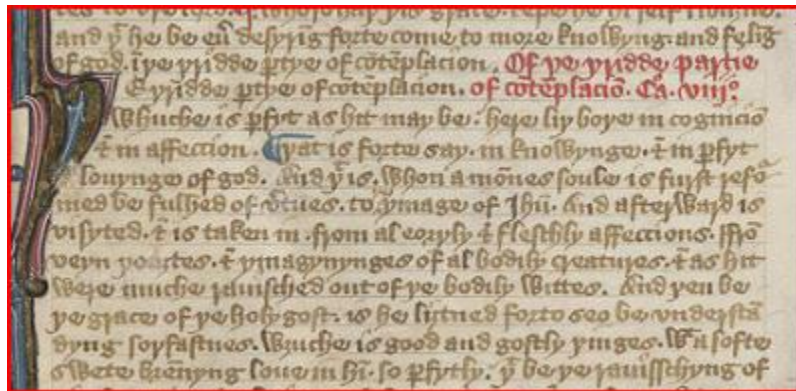 and þͭ he be eũ desyrig forte come to more knowyng. and felīg
of god. ī þe þridde ꝑtye of cōtēplacion. Of þe þridde partie
Þe þridde ptye of cōtēplacion. of cōtēplaciō. Ca. viijº.
Whuche is ꝑfyt as hit may be. here liþ boþe in cogniciō
⁊ in affection. ¶ Þat is forte say. in knowynge. ⁊ in ꝑfyt
louynge of god. And þͭ is. Whon a mōnes soule is furst refoꝛ
med be fulhed of v̾tues. to þͤ ymage of Ihū. And afterward is
visyted. ⁊ is taken in. from al eorþly ⁊ fleschly affeccions. Frō
veyn þoȝtes. ⁊ ymagynynges of al bodily creatures. ⁊ as hit
were muche rauisched out of þe bodily wittes. And þen be
þe grace of þe holy gost. is he liȝtned forto seo be vnderstā
dyng soþfastnes. Whuche is good and gostly þinges. Wͭ a softe
swete brēnyng loue in hī. so ꝑfytly. þͭ be þe rauisschyng of